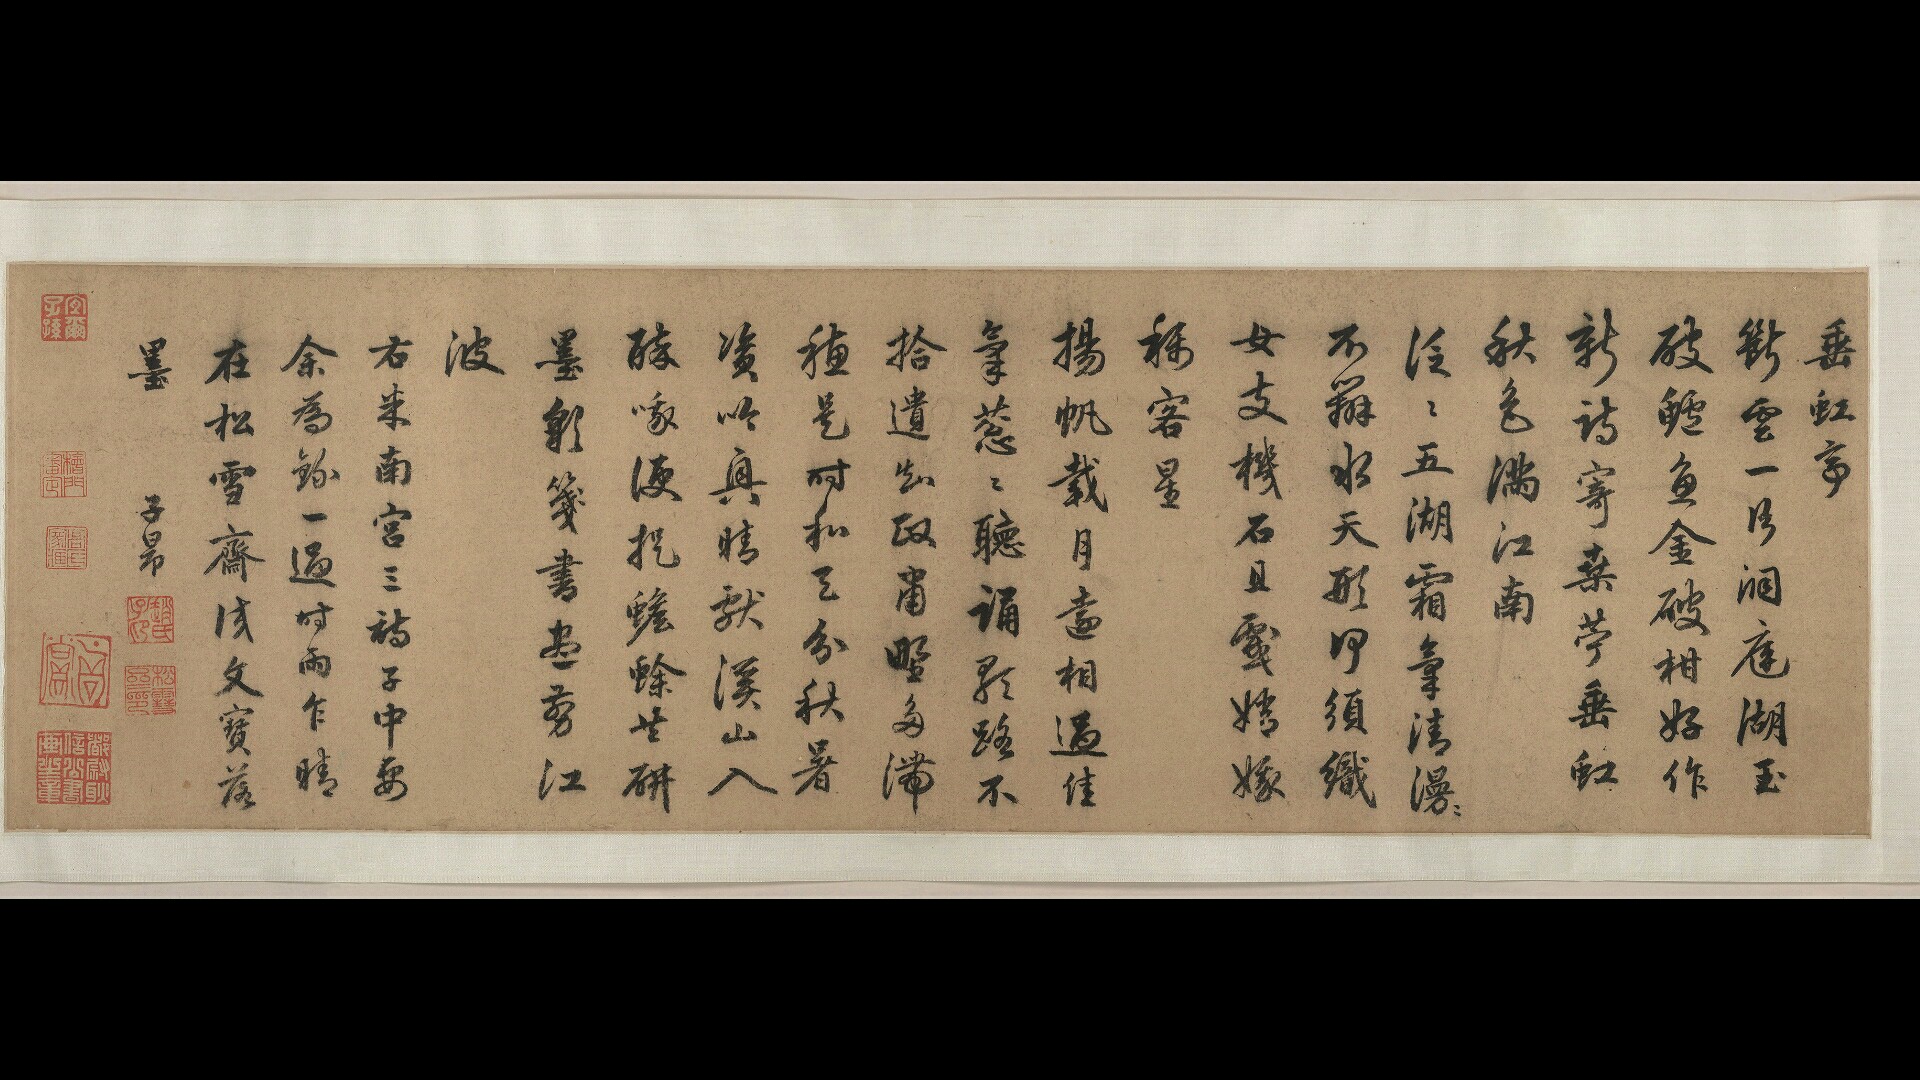 垂虹亭
斷雲一片洞庭湖玉
破鱸魚金破柑好作
新詩寄桑苧垂虹
秋色滿江南
泛泛五湖霜氣清漫漫
不辨水天形何須織
女支機石且戲嫦娥
稱客星
揚帆載月遠相過佳
氣蔥蔥聽誦歌路不
拾遺知政肅野多滯
穗是時和天分秋暑
資吟興晴獻溪山入
醉哦便捉蟾蜍共研
墨彩箋書盡剪江
波
右米南宮三詩子中要
余為錄一過時雨乍晴
在松雪齋試文寶落
墨
子昂
趙氏子昂